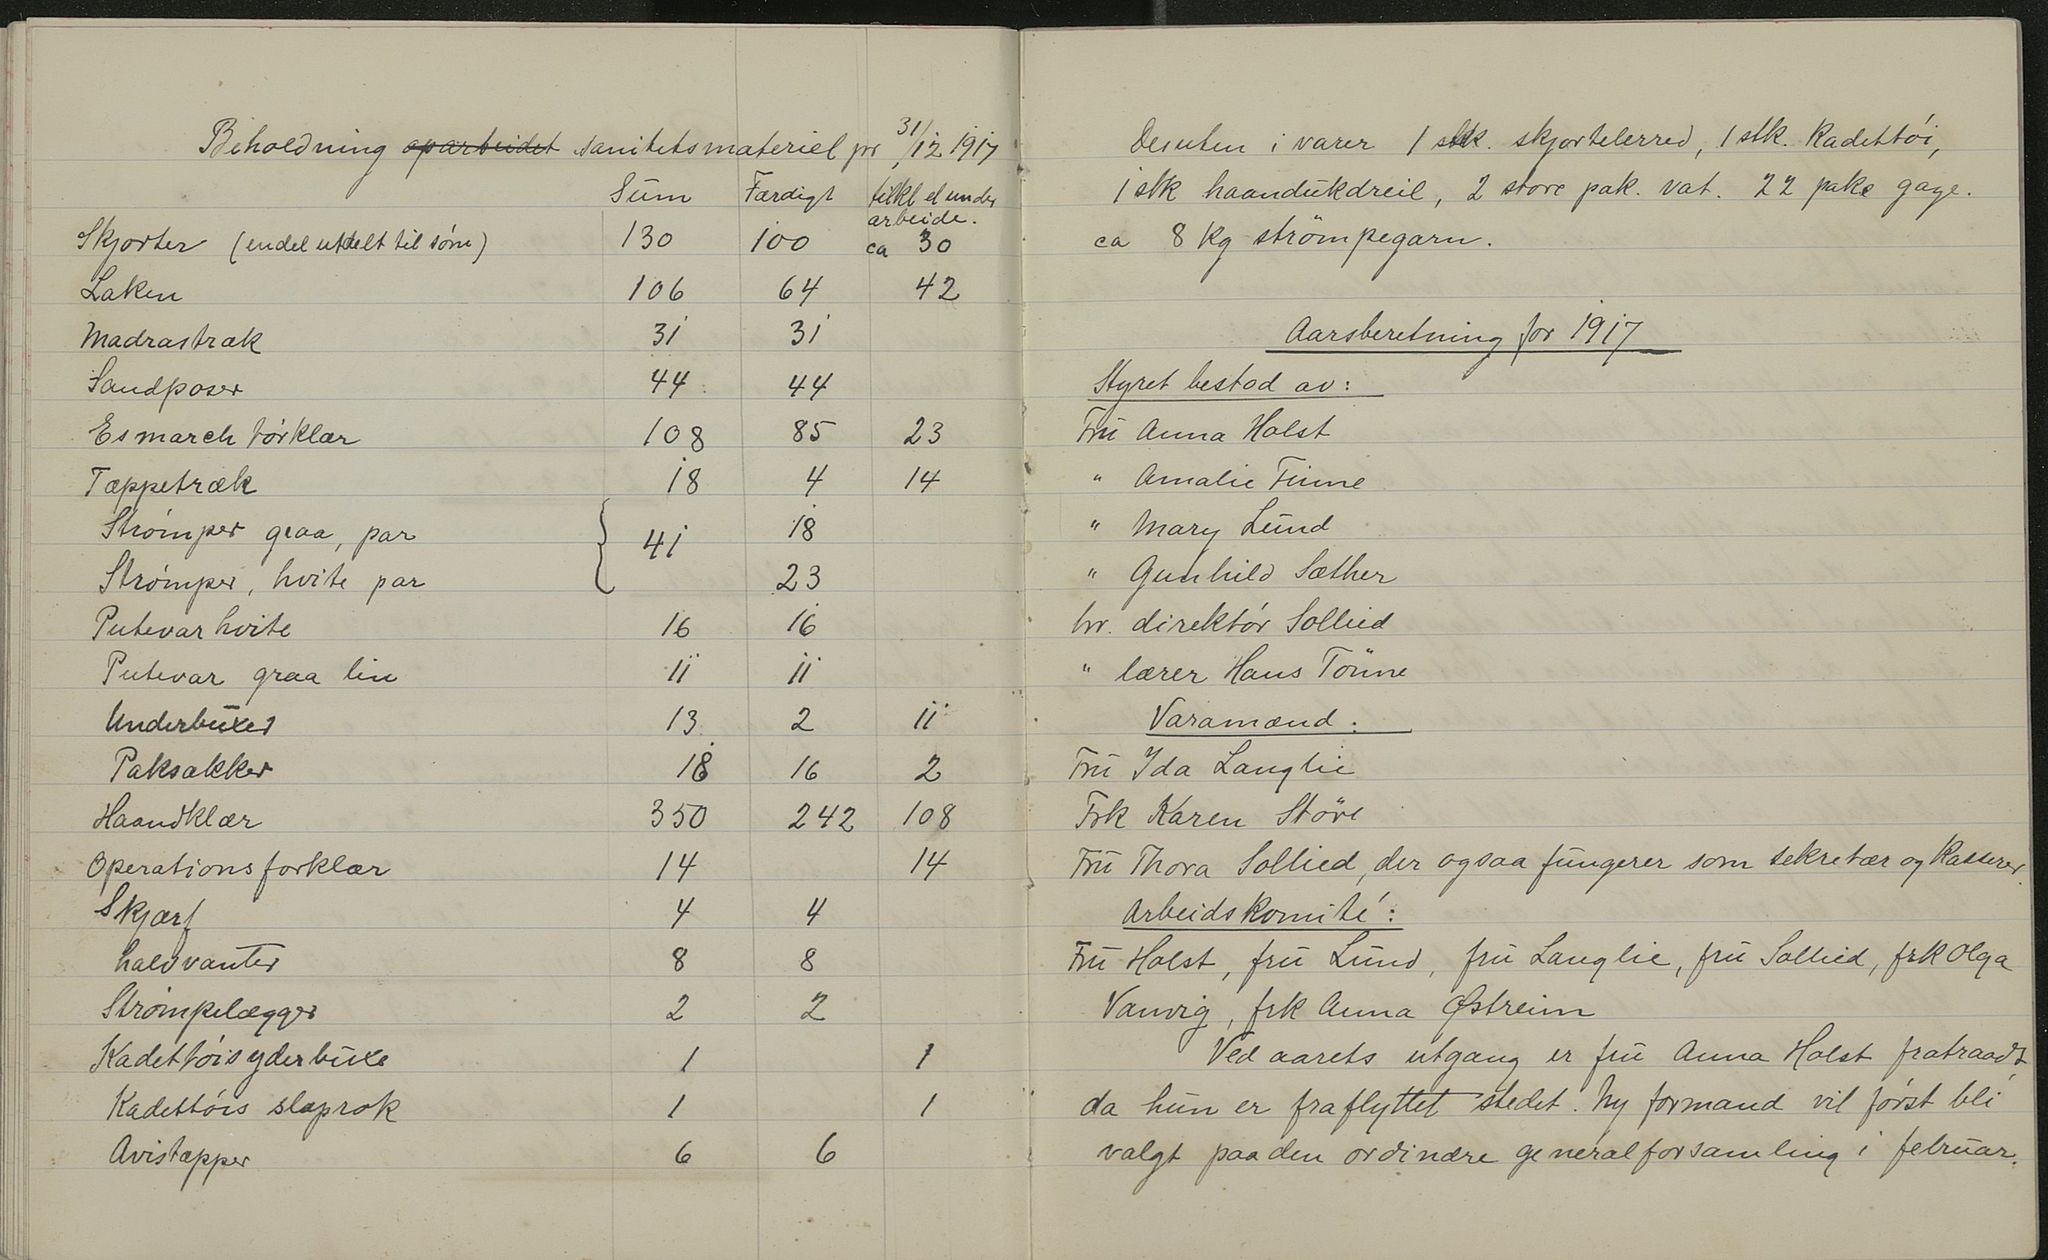 Beholdning oparbeidet sanitetsmateriel pr 31/12 1917
Sum Færdigt tilkl el under
arbeide.
Skjorter (endel utdelt til søm) 130 100 ca 30
Laken 106 64 42
Madrastræk 31 31
Sandposer 44 44
Esmarch tørklær 108 85 23
Tæppetræk 18 4 14
Strømper graa, par 41 18
Strømper, hvite par 23
Putevar hvite 16 16
Putevar graa lin 11 11
Underbuxer 13 2 11
Paksækker 18 16 2
Haandklær 350 242 108
Operationsforklær 14 14
Skjærf 4 4
halvvanter 8 8
Strømpelægger 2 2
Kadettøis yderbuxe 1 1
Kadettøis slaprok 1 1
Avistæpper 6 6
Desuten i varer 1 stk. skjortelerred, 1 stk. Kadettøi,
1 stk haandukdreil, 2 store pak. vat. 22 pake gaze.
ca 8 kg strömpegarn.
Aarsberetning for 1917
Styret bestod av:
Fru Anna Holst
" Amalie Finne
" Mary Lund
" Gunhild Sæther
hr. direktør Sollied
" lærer Hans Tönne
Varamænd:
Fru Ida Langlie
Frk Karen Störe
Fru Thora Sollied, der ogsaa fungerer som sekretær og kasserer.
Arbeidskomité:
Fru Holst, fru Lund, fru Langlie, fru Sollied, frk Olga
Vanvig, frk Anna Østreim
Ved aarets utgang er fru Anna Holst fratraadt
da hun er fraflyttet stedet. Ny formand vil først bli
valgt paa den ordinære generalforsamling i februar.